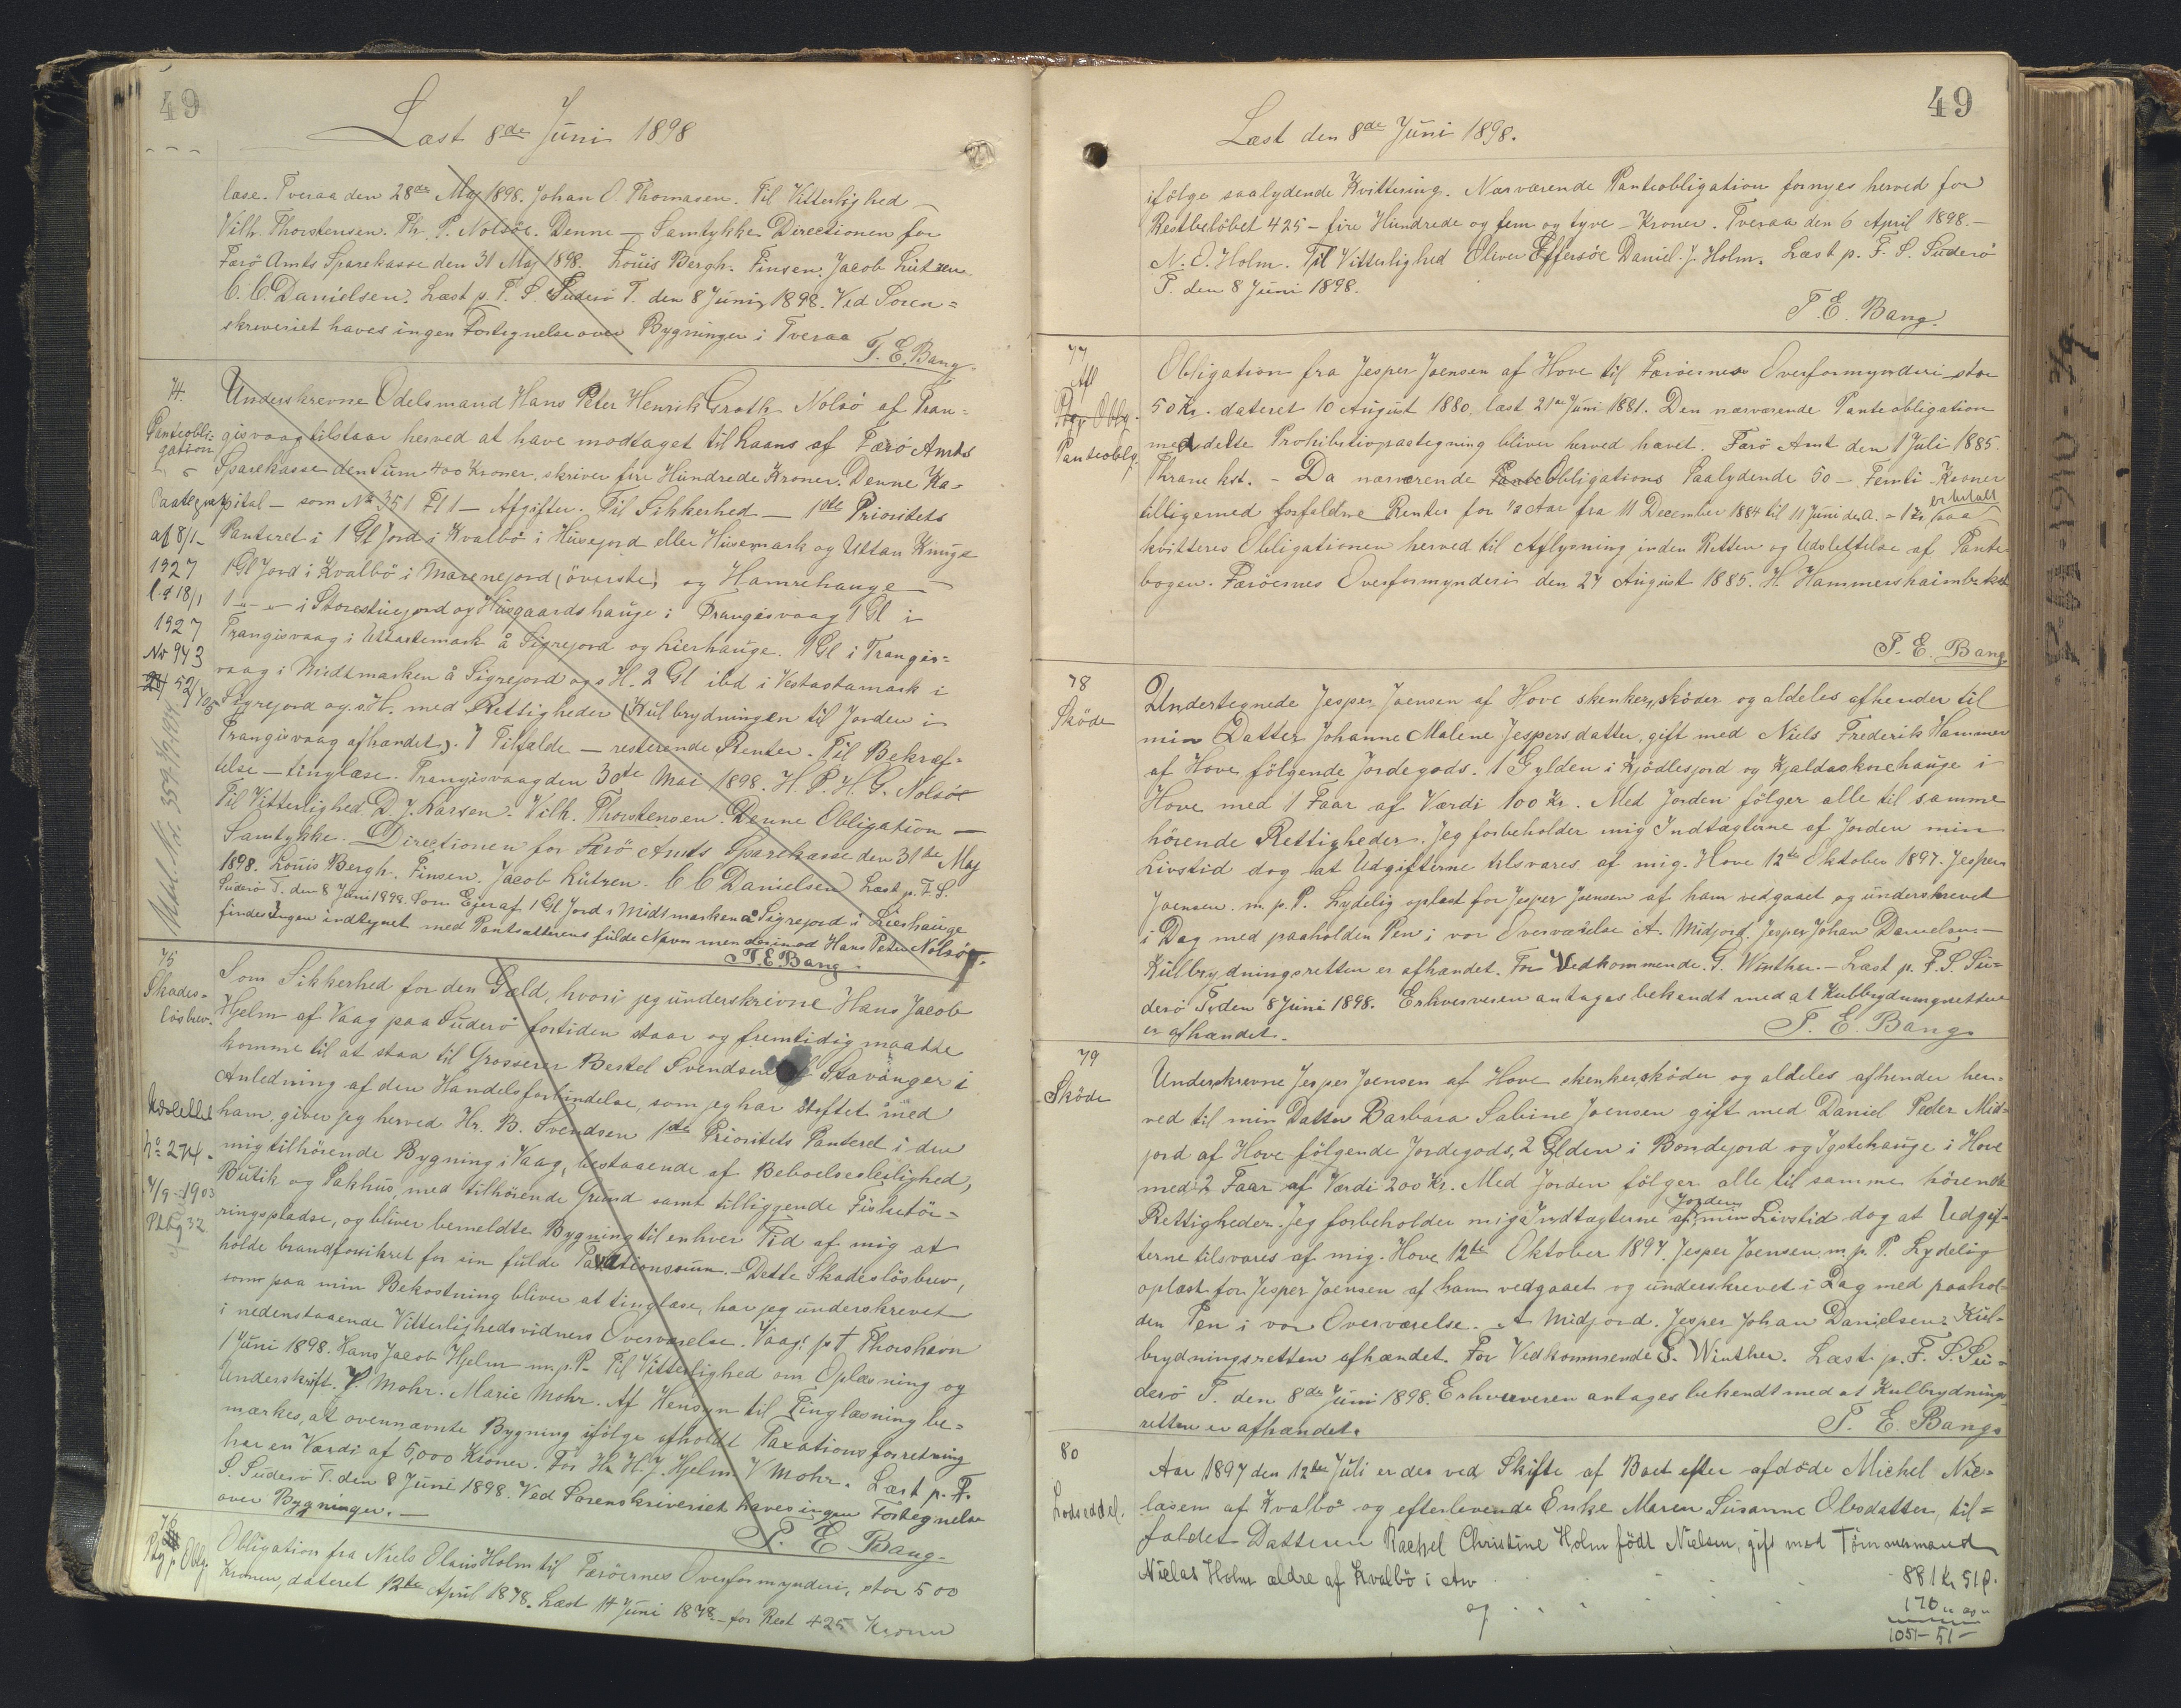 49
Læst 8de Juni 1898
læse. Tveraa den 28de Maj 1898. Johan O. Thomasen. Til Vitterlighed –
Vilh. Thorstensen. Th. P. Nolsöe. Denne – Samtykke Directionen for
Færö Amts Sparekasse den 31 Maj 1898. Louis Bergh. Finsen. Jacob Lützen
C. C. Danielsen. Læst p. F. S. Suderö T. den 8 Juni 1898. Ved Soren=
skriveriet haves ingen Fortegnelse over Bygninger i Tveraa
T. E. Bang.
74.
Panteobli-
gation
Paategn
af 8/1-
1927
l. d 18/1
1927
No 943
Underskrevne Odelsmand Hans Peter Henrik Groth Nolsö af Tran=
gisvaag tilstaar herved at have modtaget til Laans af Færö Amts
Sparekasse den Sum 400 Kroner, skriver fire Hundrede Kroner. Denne Ka-
pital – som No 351 Fl 1 – Afgifter. Til Sikkerhed – 1ste Prioritets
Panteret i 1 Gl Jord i Kvalbö i Husejord eller Husemark og Uttan Kinge
1 Gl Jord i Kvalbö i Marenejord (överste) og Hamrehauge –
1 – – i Storestuejord og Husgaardshauge i Trangisvaag 1 Gl i
Trangisvaag i Uttastemark å Sigrejord og Lierhauge. 1 Gl i Trangis=
vaag i Midtmarken å Sigrejord og s H. 2 Gl ibd i Vestastamark i
Sigrejord og s. H. med Rettigheder (Kulbrydningen til Jorden i
Trangisvaag afhændet). I Tilfælde – resterende Renter. Til Bekræf=
telse – tinglæse. Trangisvaag den 30te Mai 1898. H. P. H. G. Nolsöe
Til Vitterlighed D. J. Larsen. Vilh. Thorstensen. Denne Obligation –
Samtykke. Directionen for Færö Amts Sparekasse den 31te Maj
1898. Louis Bergh. Finsen. Jacob Lützen. C C Danielsen Læst p. F. S.
Suderö T. den 8 Juni 1898. Som Ejer af 1 Gl Jord i Midtmarken å Sigrejord i Lierhauge
findes Ingen indtegnet med Pantsætterens fulde Navn men derimod Hans Peter Nolsöe.
T. E Bang.
75
Skades-
lösbrev.
Udslettet
No 274.
4/9 1903
Ptbg 32
Som Sikkerhed for den Gæld, hvori jeg underskrevne Hans Jacob
Hjelm af Vaag paa Suderö fortiden staar og fremtidig maatte
komme til at staa til Grosserer Bertel Svendsen af Stavanger i
Anledning af den Handelsforbindelse, som jeg har stiftet med
ham, giver jeg herved Hr. B. Svendsen 1ste Prioritets Panteret i den
mig tilhörende Bygning i Vaag, bestaaende af Beboelseslejlighed,
Butik og Pakhus, med tilhörende Grund samt tilliggende Fisketör-
ringspladse, og bliver bemeldte Bygning til enhver Tid af mig at
holde brandforsikret for sin fulde Taxationssum. – Dette Skadeslösbrev,
som paa min Bekostning bliver at tinglæse, har jeg underskrevet
i nedenstaaende Vitterlighedsvidners Overværelse. Vaag, pt Thorshavn
1 Juni 1898. Hans Jacob Hjelm m. p. P. Til Vitterlighed om Oplæsning og
Underskrift. V. Mohr. Marie Mohr. Af Hensyn til Tinglæsning be-
mærkes, at ovennævnte Bygning ifölge afholdt Taxationsforretning
har en Værdi af 5,000 Kroner. For Hr H. J. Hjelm V Mohr. Læst p. F.
S. Suderö T. den 8 Juni 1898. Ved Sorenskriveriet haves ingen Fortegnelse
over Bygninger. –
T. E Bang.
76
Obligation fra Niels Olaus Holm til Færöernes Overformynderi, stor 500
Kroner, dateret 12te April 1878. Læst 14 Juni 1878. – for Rest 425 Kroner
49
Læst den 8de Juni 1898.
ifölge saalydende Kvittering. Nærværende Panteobligation fornyes herved for
Restbelöbet 425 – fire Hundrede og fem og tyve – Kroner. Tveraa den 6 April 1898. –
N. O. Holm. Til Vitterlighed Oliver Effersöe Daniel J. Holm. Læst p. F. S. Suderö
T. den 8 Juni 1898.
T. E. Bang.
77
Afl
Panteoblg.
Obligation fra Jesper Joensen af Hove til Færöernes Overformynderi stor
50 Kr. dateret 10 August 1880, læst 21de Juni 1881. Den nærværende Panteobligation
meddelte Prohibitivpaategning bliver herved hævet. Færö Amt den 1 Juli 1885.
Thrane kst. – Da nærværende Obligations Paalydende 50 – Femti – Kroner
tilligemed forfaldne Renter for 1/2 Aar fra 11 December 1884 til 11 Juni d. A. = 1 Kr, er betalt
kvitteres Obligationen herved til Aflysning inden Retten og Udslettelse af Pante-
bogen. Færöernes Overformynderi den 27 August 1885. H. Hammershaimb kst
T. E. Bang
78
Sköde
Undertegnede Jesper Joensen af Hove skenker, sköder og aldeles afhender til
min Datter Johanne Malene Jespersdatter, gift med Niels Frederik Hammer
af Hove, fölgende Jordegods. 1 Gylden i Kjödlesjord og Kjaldaskorehauge i
Hove med 1 Faar af Værdi 100 Kr. Med Jorden fölger alle til samme
hörende Rettigheder. Jeg forbeholder mig Indtægterne af Jorden min
Livstid dog at Udgifterne tilsvares af mig. Hove 12te Oktober 1897. Jesper
Joensen. m. p. P. Lydelig oplæst for Jesper Joensen af ham vedgaaet og underskrevet
i Dag med paaholden Pen i vor Overværelse A. Midjord. Jesper Johan Danielsen –
Kulbrydningsretten er afhændet. For Vedkommende. G. Winther. – Læst p. F. S. Su=
derö T. den 8 Juni 1898. Erhververen antages bekendt med at Kulbrydningsretten
er afhændet.
T. E. Bang
79
Sköde
Underskrevne Jesper Joensen af Hove skenker, sköder og aldeles afhender her-
ved til min Datter Barbara Sabine Joensen gift med Daniel Peder Mid-
jord af Hove fölgende Jordegods, 2 Gylden i Bondejord og Ygstehauge i Hove
med 2 Faar af Værdi 200 Kr. Med Jorden fölger alle til samme hörende
Rettigheder. Jeg forbeholder mig Indtægterne af Jorden min Livstid dog at Udgif-
terne tilsvares af mig. Hove 12te Oktober 1897. Jesper Joensen. m. p. P. Lydelig
oplæst for Jesper Joensen af ham vedgaaet og underskrevet i Dag med paahol-
den Pen i vor Overværelse. A Midjord. Jesper Johan Danielsen. Kul-
brydningsretten afhændet. For Vedkommende G. Winther. Læst p. F. S. Su-
derö T. den 8de Juni 1898. Erhververen antages bekendt med at Kulbrydnings-
retten er afhændet.
T. E. Bang
80
Lodseddel.
Aar 1897 den 12te Juli er der ved Skifte af Boet efter afdöde Michel Nic-
lasen af Kvalbö og efterlevende Enke Maren Susanne Olesdatter, til=
faldet Datteren Rachel Christine Holm född Nielsen, gift med Tömmermand
Nielas Holm ældre af Kvalbö i Arv 881 Kr 51 Ö.
og 170
1051 – 51 –